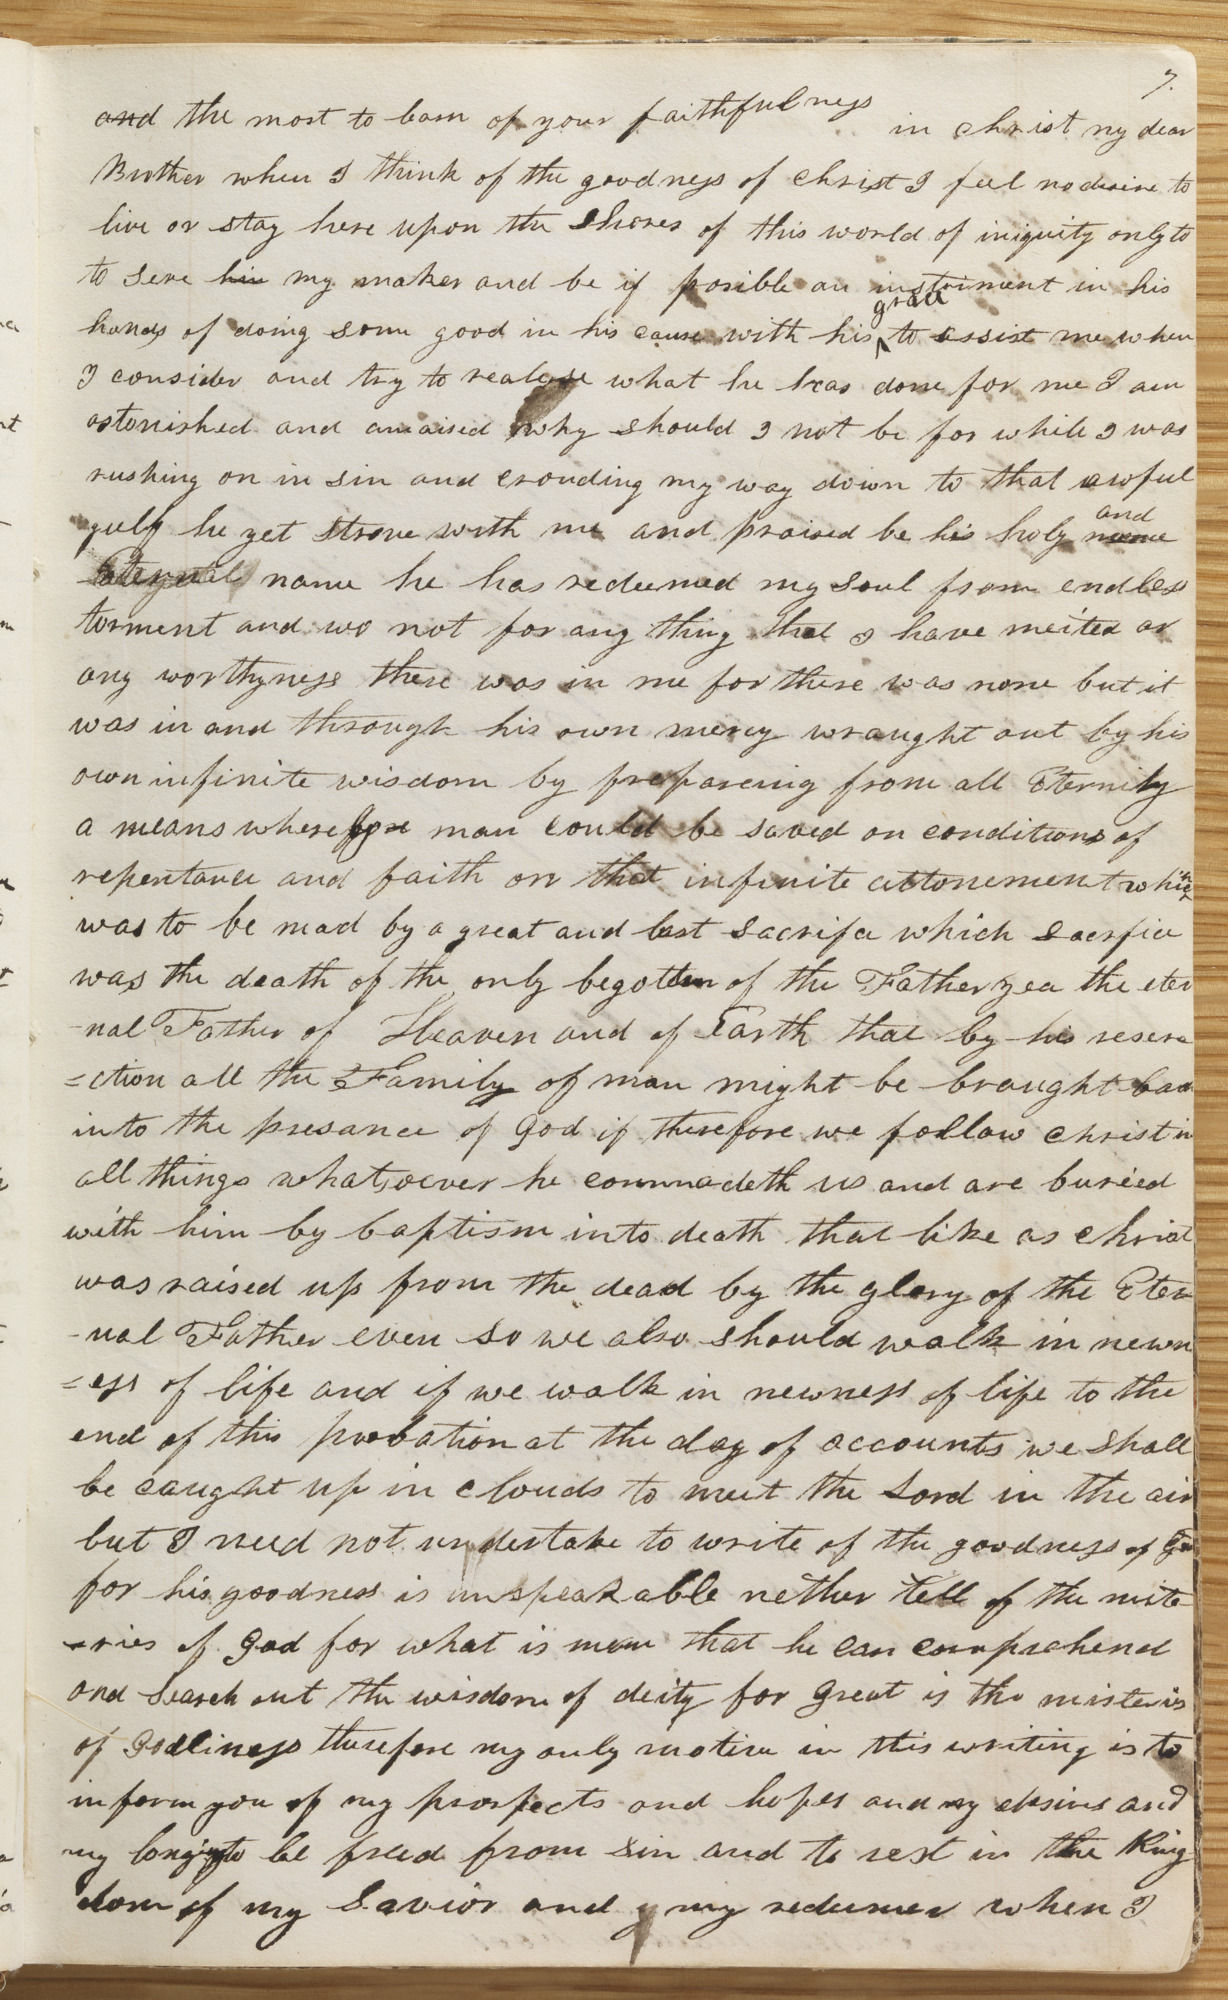 7.
and the most to barn of your faithfulness in christ my dear
Brother when I think of the goodness of christ I feel no desire to
live or stay here upon the shores of this world of iniquity only to
to serve his my maker and be if posible an instriment in his
hands of doing some good in his cause with his grace to assist me when
I consider and try to realise what he has done for me I am
astonished and amaised why should I not be for while I was
rushing on in sin and crouding my way down to that awful
gulf he yet strove with me and praised be his holy name and
Eternal name he has redeemed my soul from endless
torment and wo not for any thing that I have meited or
any worthyness there was in me for there was none but it
was in and through his own mercy wraught out by his
own infinite wisdom by prepareing from all Eternity
a means whereby man could be saved on conditions of
repentance and faith on that infinite attonement which
was to be mad by a great and last sacrifice which sacrfice
was the death of the only begotten of the Father yea the eter
-nal Father of Heaven and of Earth that by his reserre
=ction all the Family of man might be braught back
into the presance of God if therefore we follow christ in
all things whatsoever he commadeth us and are buried
with him by baptism into death that like as christ
was raised up from the dead by the glory of the Eter
-nal Father even so we also should walk in newn
=ess of life and if we walk in newness of life to the
end of this probation at the day of accounts we shall
be caught up in clouds to meet the Lord in the air
but I need not undertake to write of the goodness of God
for his goodness is unspeakable nether tell of the mite
-ries of God for what is man that he can comprehend
and search out the wisdom of deity for great is the misteries
of Godliness therefore my only motive in this writing is to
inform you of my prospects and hopes and my desires and
my longing to be freed from sin and to rest in the King
dom of my Savior and my redeemer when I